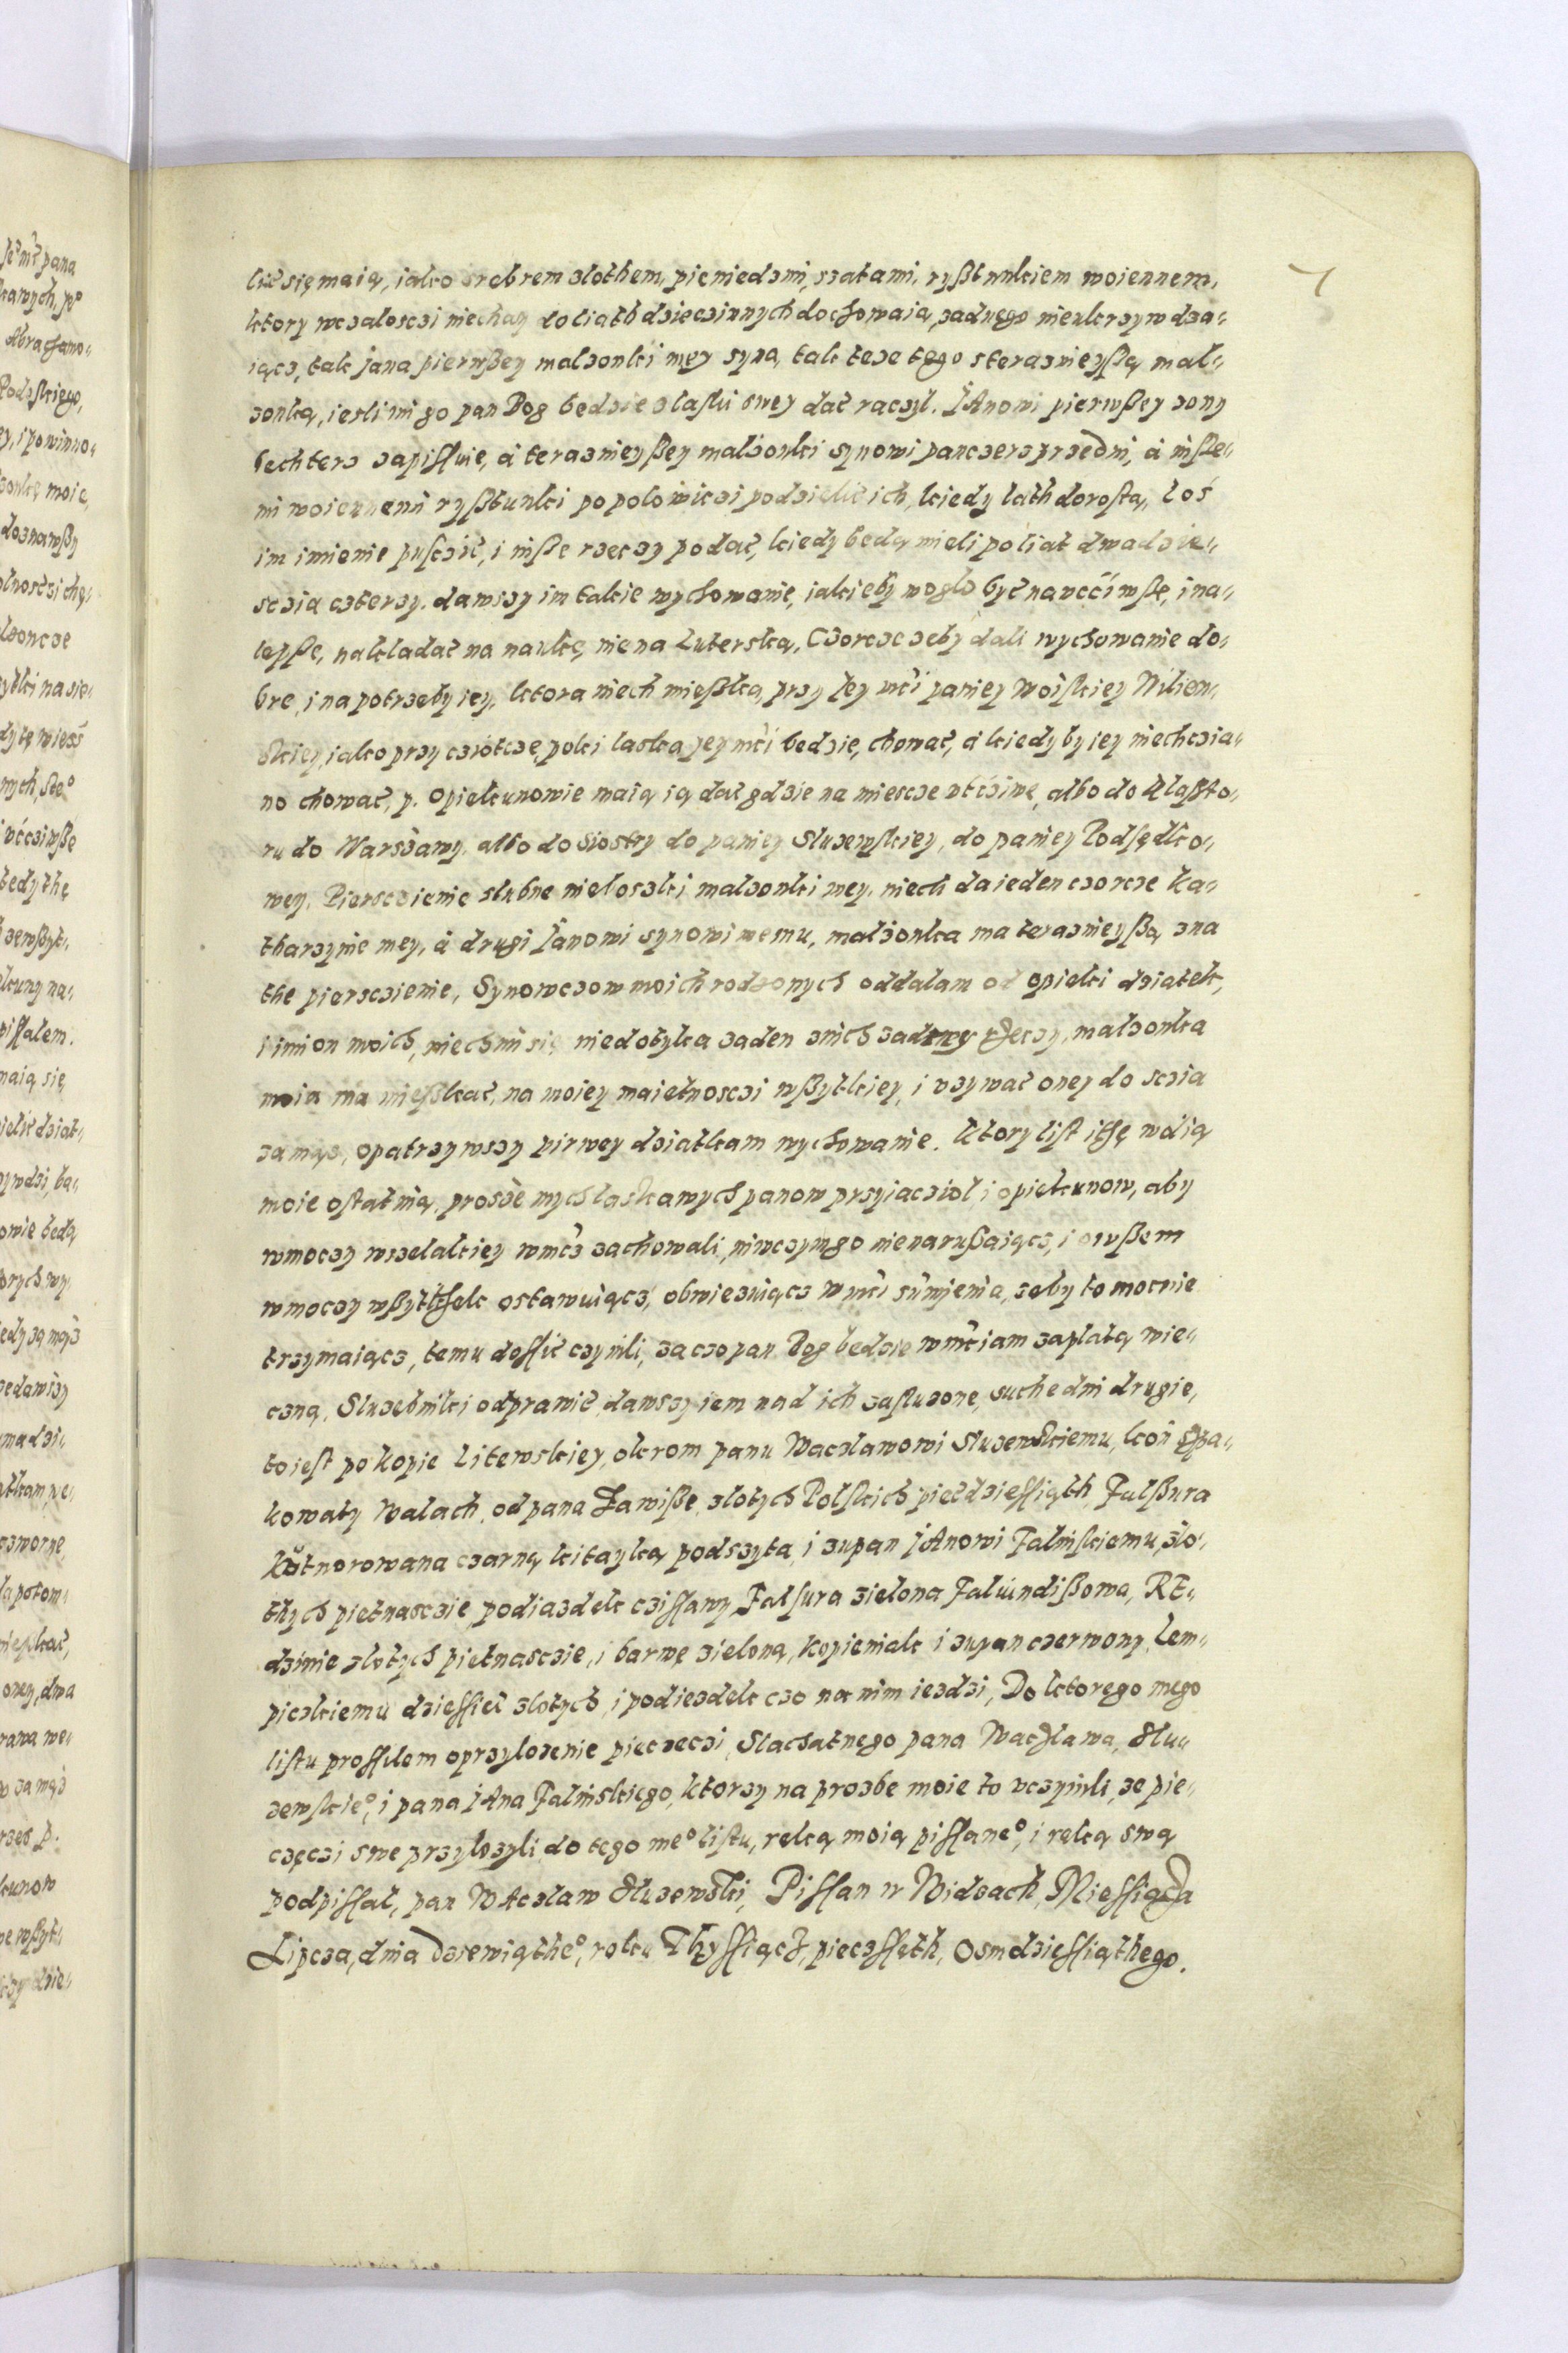 7
lić się maią, iako srebrem złothem, pieniedzmi, szatami, ryßtunkiem woiennem,
ktory wczalosczi niechay do liath dzieczinnych dochowaia, zadnego nieukrzywdza-
iącz, tak jana pierwßey malzonki mey syna, tak teze tego s teraznieyßą mal-
zonką, iesli mi go pan Bog będzie z laski swey dać raczyl. JAnowi pierwßey zony
bechterz zapissuie, á teraznieyßey malżonki synowi panczerz przedni, á inße-
mi woiennemi ryßtunki po polowiczi podzielić ich, kiedy lath dorostą, Toś
im imienie pusczić, i inße rzeczy podać, kiedy będą mieli po liat dwadzie-
sczia czterzy. dawszy im takie wychowanie, iakieby moglo być naucciwße, i na-
lepße, nakladać na naukę, nie na Luterską, Czorcze zeby dali wychowanie do-
bre, i na potrzeby iey, ktora niech mießka, przy Jey mći paniey Woiskiey Wilien-
skiey, iako przy cziotcze, poki laska jey mći bedzie, chować, á kiedy by iey niechczia-
no chować, p. opiekunowie maią ią dać gdzie na miescze utćziwe, albo do klaßto-
ru do Warszawy, albo do siostry do paniey Sluzewskiey, do paniey Podsędko-
wey. Piersczienie slubne nieboszki malzonki mey. niech da ieden czorcze Ka-
tharzynie mey, á drugi Janowi synowi memu, malżonka ma teraznieyßa zna
the piersczienie, Synowczow moich rodzonych oddalam od opieki dziatek,
i imion moich, niech mi się niedotyka zaden z nich zadney rzeczy, malzonka
moia ma mießkać, na moiey maietnosczi wßytkiey, i uzywać oney do sczia
za mąz, opatrzywszy pirwey dziatkam wychowanie. Ktory list iße wolią
moie ostatnią, proszę mych laskawych panow przyiacziol, i opiekunow, aby
w moczy wszelakiey wmcz zachowali, niwczymgo nienarußaiącz, i owßem
w moczy wßytßek ostawuiącz, obwiezuiącz w mći sumjenia, zeby to mocnie
trzymaiącz, temu dossić czynili, za czo pan Bog bedzie wmćiam zaplatą wie-
czną, Sluzebniki odprawić, dawszy iem nad ich zasluzone, suche dni drugie,
to iest po kopie Litewskiey, okrom panu Waczlawowi Sluzewskiemu, koń szpa-
kowaty Walach, od pana Zawiße, zlotych Polskich pieć dziessiąth, Falßura
kotnorowana czarną kitayką podszyta, i zupan JAnowi Falinskiemu, zlo-
thych pietnasczie, podiazdek czissawy, Falsura zielona Faluindißowa, RE-
dzinie zlotych pietnasczie, i barwę zieloną, kopieniak i zupan czerwony, Lem-
piczkiemu dziessieć zlotych, i podiezdek czo na nim iezdzi, Do ktorego mego
listu prossilem o przylozenie pieczeczi, Slachatnego pana Waczlawa, Slu-
zewskieº, i pana JAna Falinskiego, ktorzy na prozbe moie to uczynili, ze pie-
częczi swe przylozyli do tego meº listu, ręką moią pissaneº, i ręką swą
podpissal, pan WAczlaw Sluzewski, Pissan w Widzach, Miessiącza
Lipcza, dnia dziewiątheº, roku Thyssiącz, pieczsseth, Osmdziessiąthego.